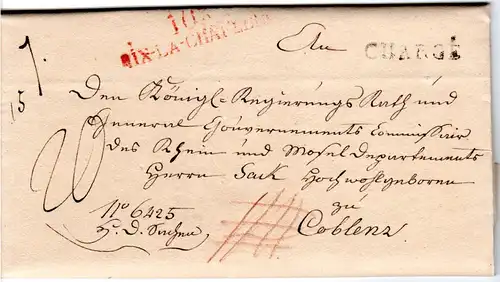 103
AIX-LA-CHAPELLE
CHARGÉ
An
Den Königl. Regierungs Rath und
General Gouvernements Commissair
des Rhein und Mosel Departements
Herrn Sack Hochwohlgeboren
zu
Coblenz
No 6425
H. D. Sachen